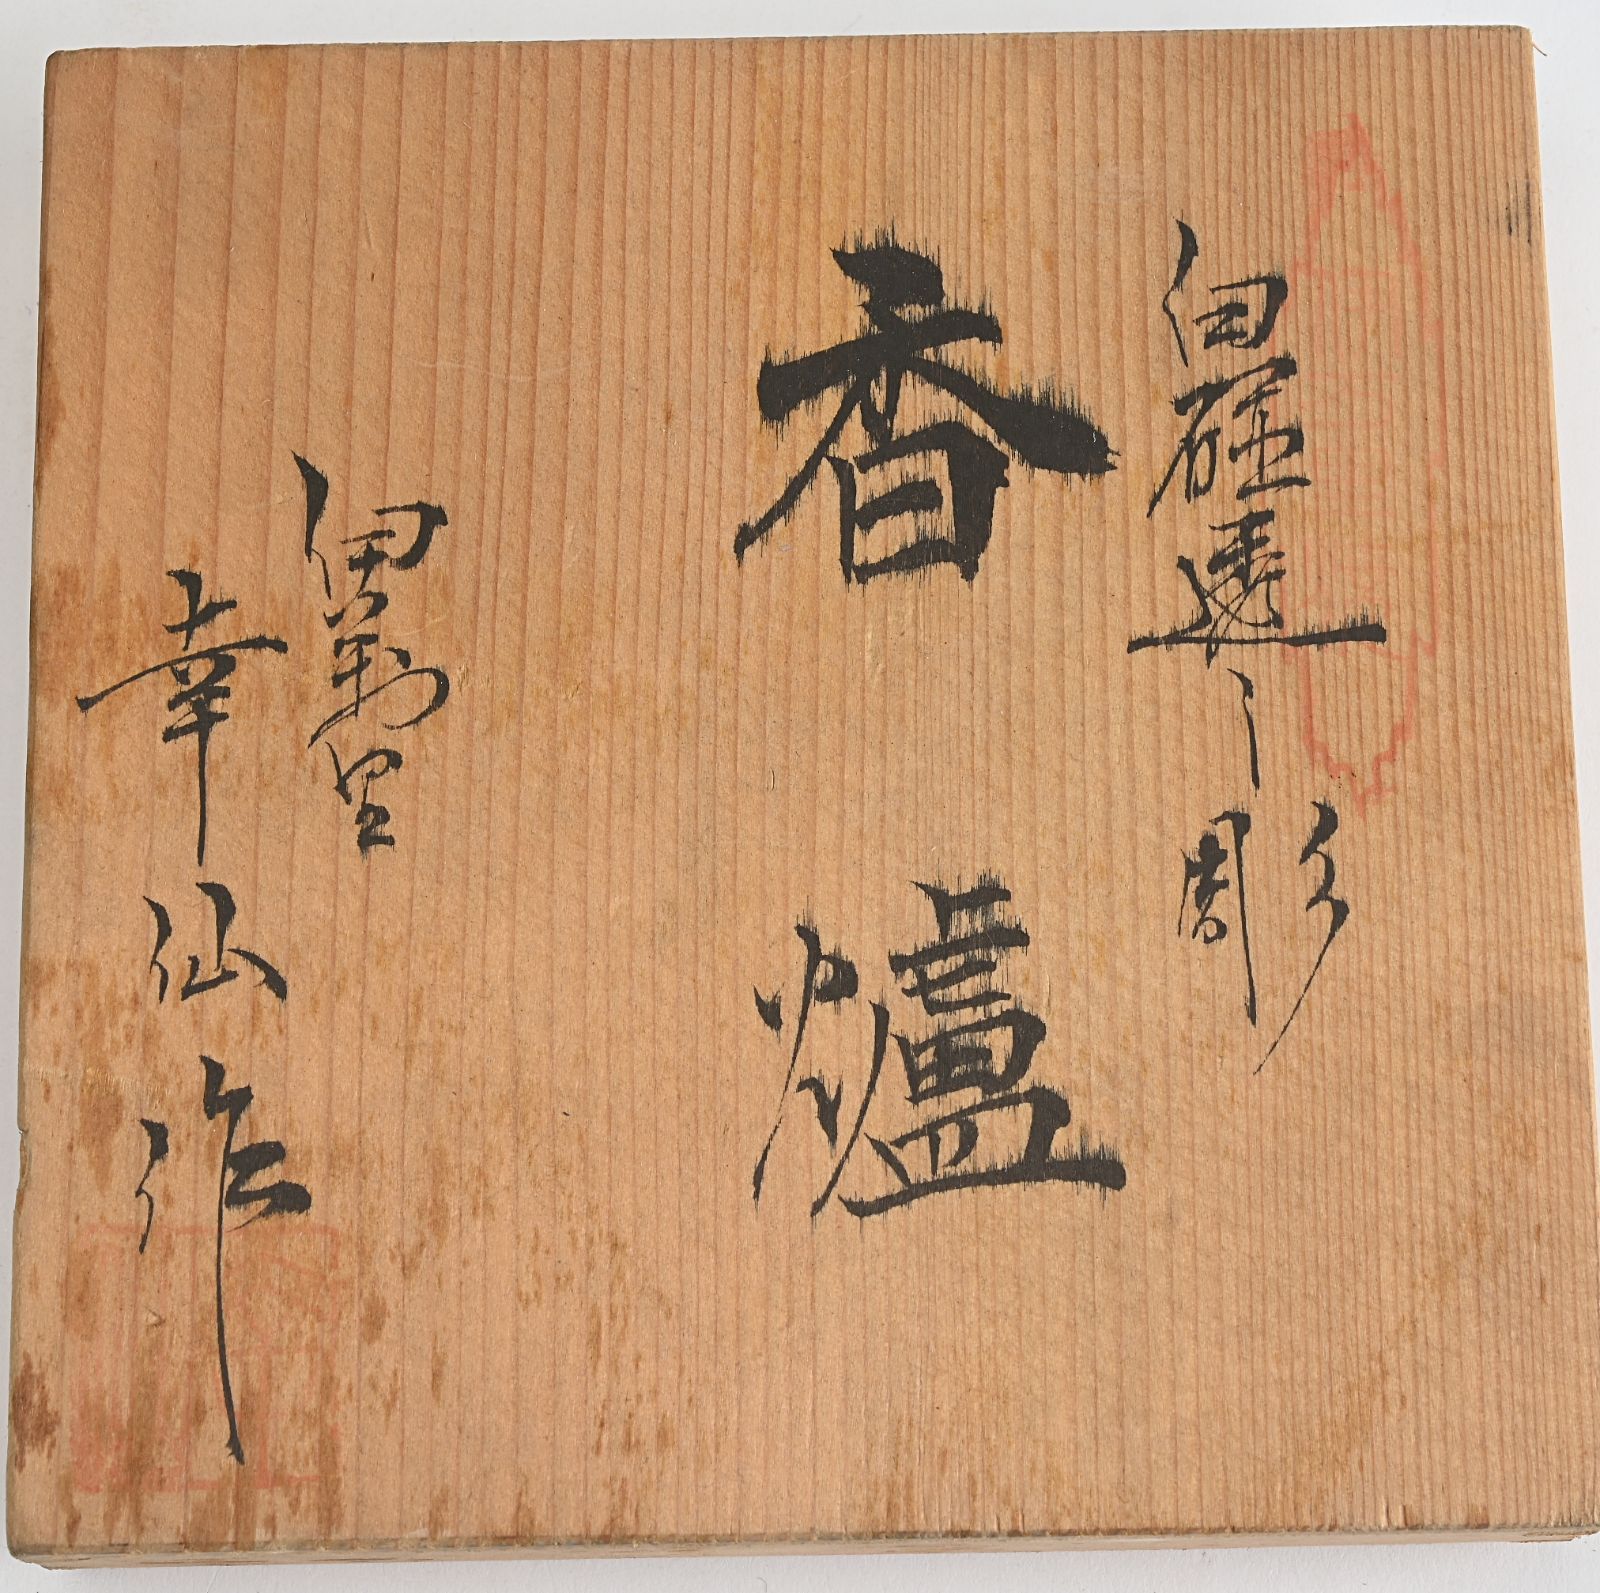 白磁透し彫
香爐
伊万里
幸仙作